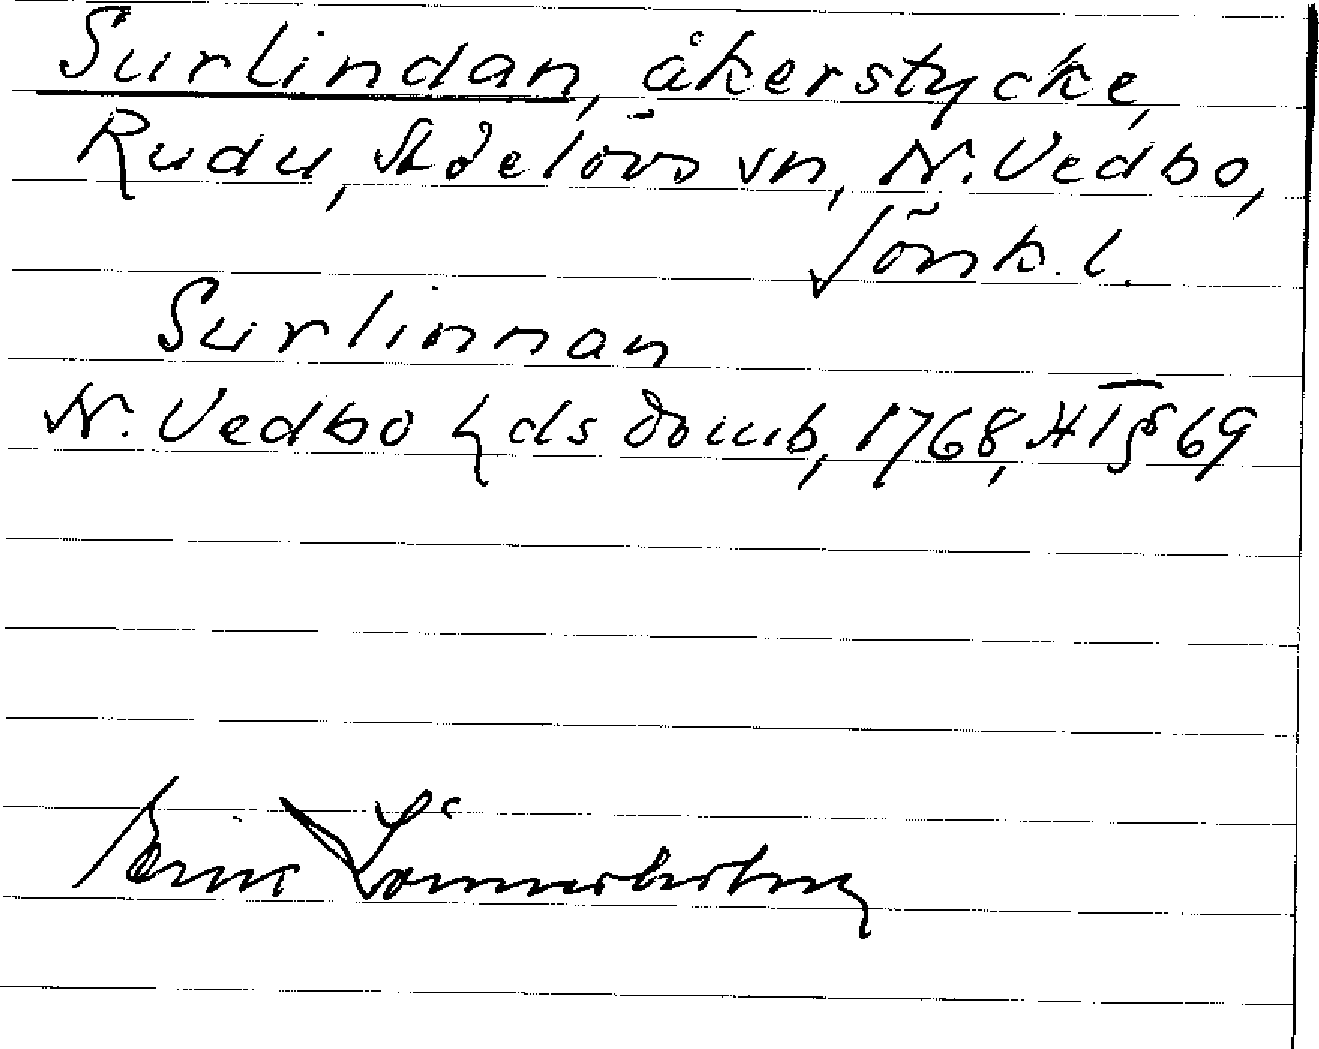 Surlindan, åkerstycke,
Rudu, Adelövs sn, N. Vedbo,
Jönk. l.
Surlinnan
N. Vedbo hds domb, 1768, HT § 69